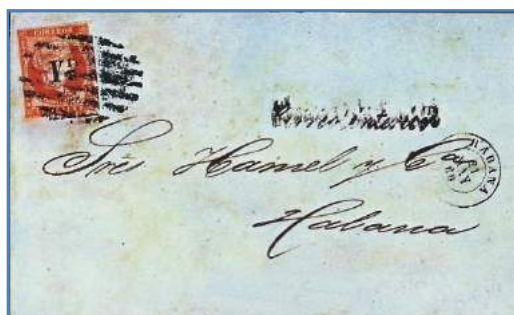 CORREOS
Y ¼
Correo Interior
Sres Hamel y Ca
HABANA
Habana